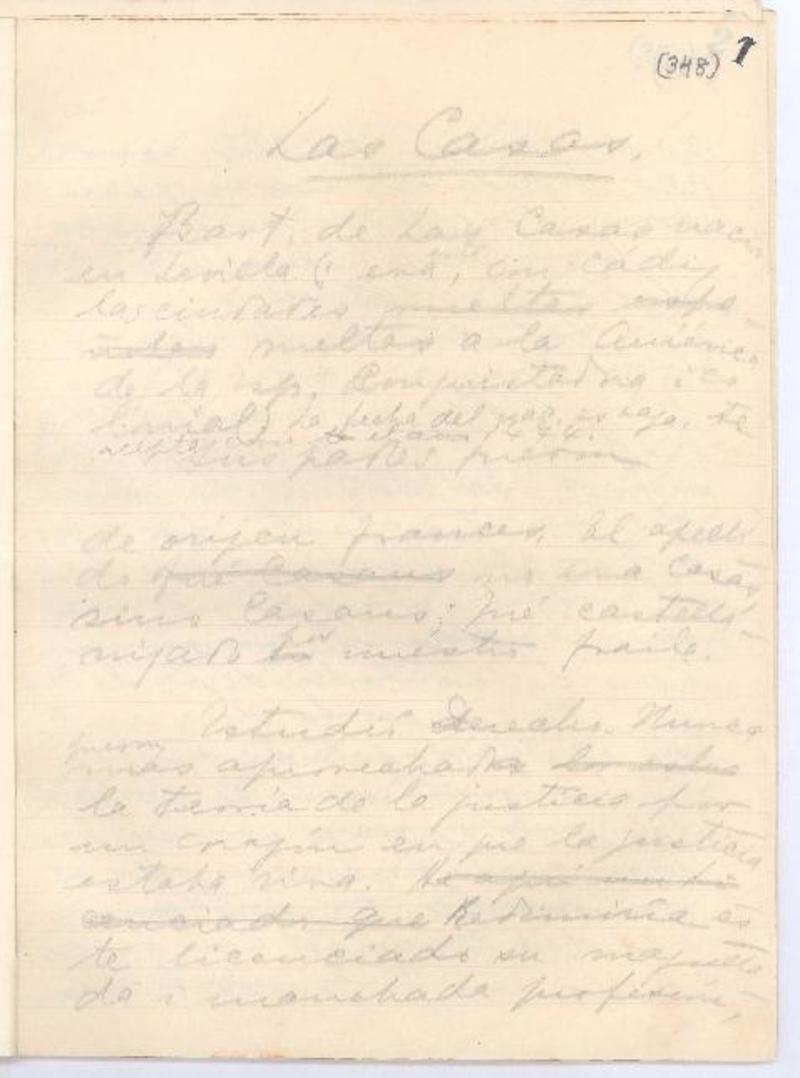 (348) 1
Las Casas.
Bart. de Las Casas nació
en Sevilla (i era, con Cádiz
las ciudades
vueltas a la América
de la ep. Conquistadora i co
lonial) la fecha del nac. es vaga. Se
acepta 1474.
Sus padres fueron
de origen frances. El apelli
do fué Casaus no era Casas
sino Casaus; fué castella-
nizado por nuestro fraile.
Estudió Derecho. Nunca
fueron
mas aprovechadas
la teoría de la justicia por
un corazón en que la justicia
estaba viva. He aquí un li
cenciado que Redimiría és
te licenciado su
da i manchada profesión,